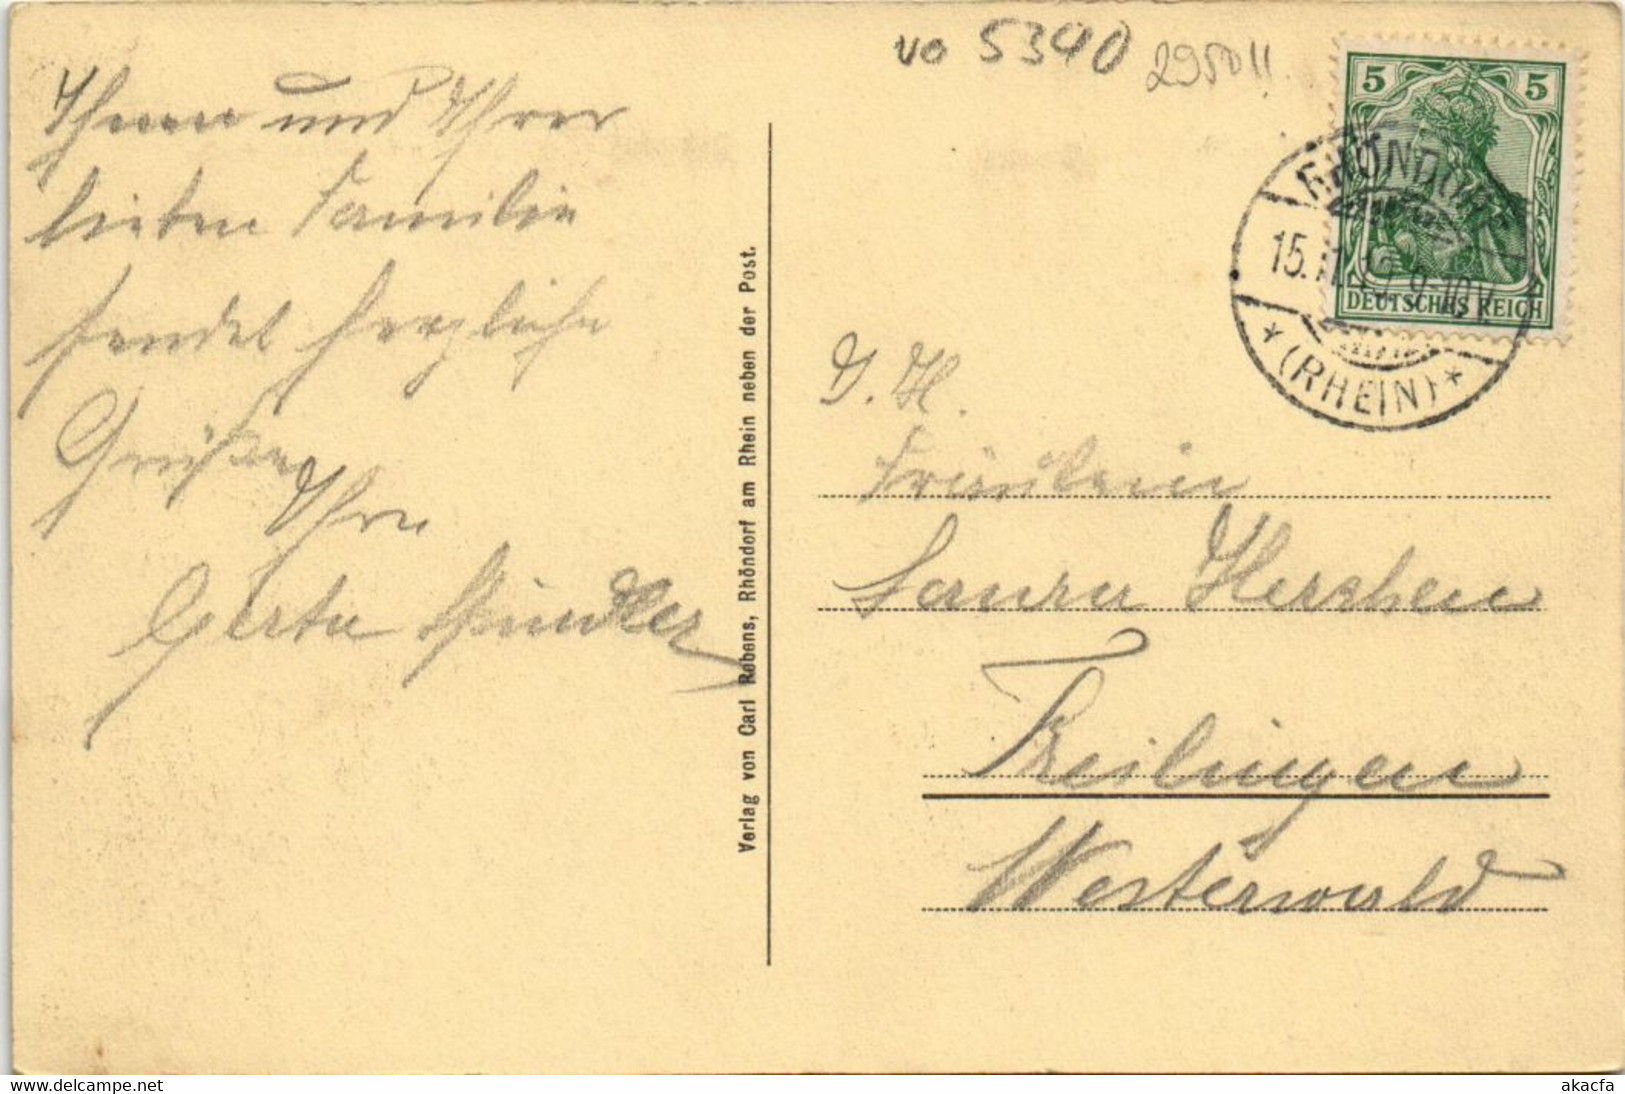 vo 5340 2950 !!
5 5
DEUTSCHES REICH
RHÖNDORF
15.
9-10V
* (RHEIN) *
Ihnen und Ihrer
lieben Familie
sendet herzliche
Grüße
Ihre
Gerta Spindler
Verlag von Carl Rebens, Rhöndorf am Rhein neben der Post.
Fräulein
Laura Herchen
Freilingen
Westerwald
www.delcampe.net
akacfa